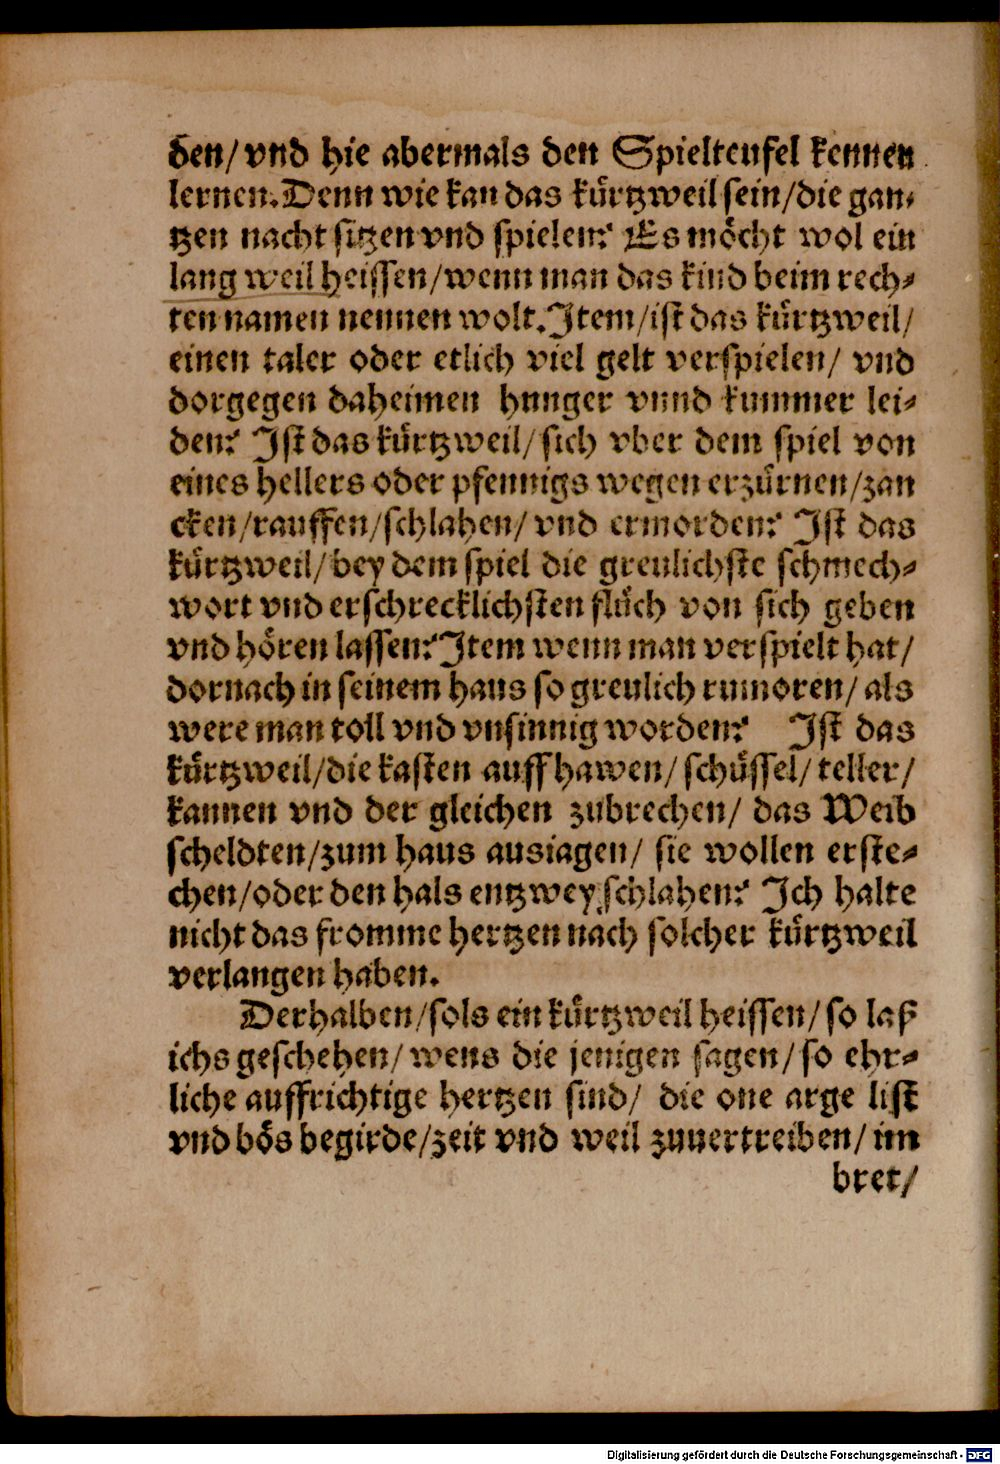 den/vnd hie abermals den Spielteufel kennen
lernen. Denn wie kan das kürtzweil sein/die gan-
tzen nacht sitzen vnd spielen? Es möcht wol ein
lang weil heissen/wenn man das kind beim rech-
ten namen nennen wolt. Item/ist das kürtzweil/
einen taler oder etlich viel gelt verspielen/ vnd
dorgegen daheimen hunger vnnd kummer lei-
den? Ist das kürtzweil/sich vber dem spiel von
eines hellers oder pfennigs wegen erzürnen/zan
cken/rauffen/schlahen/ vnd ermorden? Ist das
kürtzweil/bey dem spiel die greulichste schmech-
wort vnd erschrecklichsten flüch von sich geben
vnd hören lassen? Item wenn man verspielt hat/
dornach in seinem haus so greulich rumoren/ als
were man toll vnd vnsinnig worden? Ist das
kürtzweil/die kasten auffhawen/schüssel/teller/
kannen vnd der gleichen zubrechen/ das Weib
scheldten/zum haus ausiagen/ sie wollen erste-
chen/oder den hals entzwey schlahen? Ich halte
nicht das fromme hertzen nach solcher kürtzweil
verlangen haben.
Derhalben/sols ein kürtzweil heissen/so laß
ichs geschehen/wens die jenigen sagen/so ehr-
liche auffrichtige hertzen sind/ die one arge list
vnd bös begirde/zeit vnd weil zuuertreiben/im
bret/
Digitalisierung gefördert durch die Deutsche Forschungsgemeinschaft - DFG